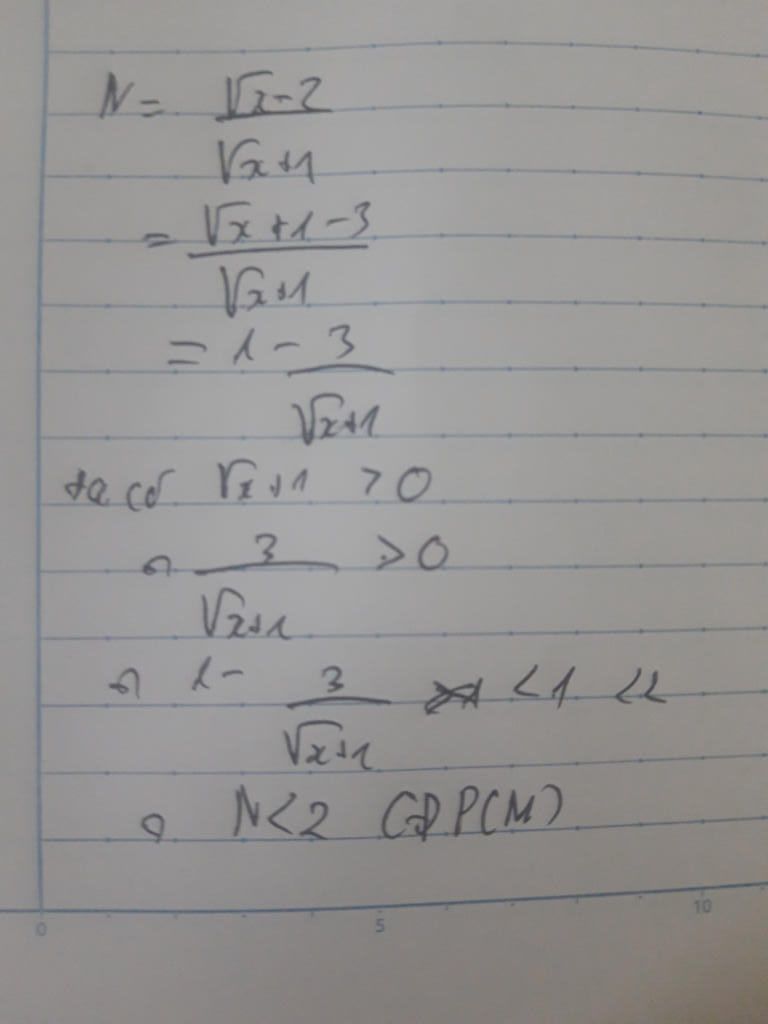 N = √x-2 / √x+1
= √x+1-3 / √x+1
= 1 - 3 / √x+1
ta có √x+1 > 0
3 / √x+1 > 0
1 - 3 / √x+1 < 1 < 2
N<2 (ĐPCM)
0 5 10